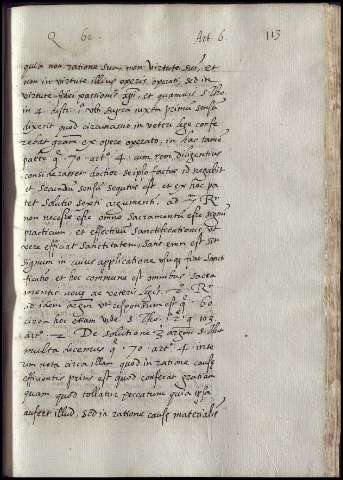 Q 62. Art. 6. 113
quia non ratione sua, non virtute sui, et
non in virtute illius operis operati, sed in
virtute fidei passionis xpi, et quamuis s. Tho.
in 4. dist. 1. vbi supra iuxta primum sensum
dixerit quod circumcisio in veteri lege confe
rebat gram ex opere operato, in hac tamen
parte q. 70. art. 4. cum rem diligentius
consideraret doctor seipso factus id negabit
et secundum sensum sequtus est et ex hoc pa
tet solutio sexti argumenti. ad
non necesse esse omne sacramentum esse signum
practicum, et effectiuum sanctificationis, ut
vere efficiat sanctitatem, satis enim est sit
signum in cuius applicatione fiat sancti
ficatio, et hoc commune est omnibus sacra
mentis nouae ac veteris legis.
ad idem argm ut responsum est q. 60
circa hoc etiam vide s. Tho. 1.2. q. 103
art. 2. De solutione argm s. Tho.
multa dicemus q. 70. art. 4. inte
rim nota circa illam quod in ratione causae
efficientis prius est quod conferat gratiam
quam quod tollatur peccatum quia ipsa
aufert illud, sed in ratione causae materialis